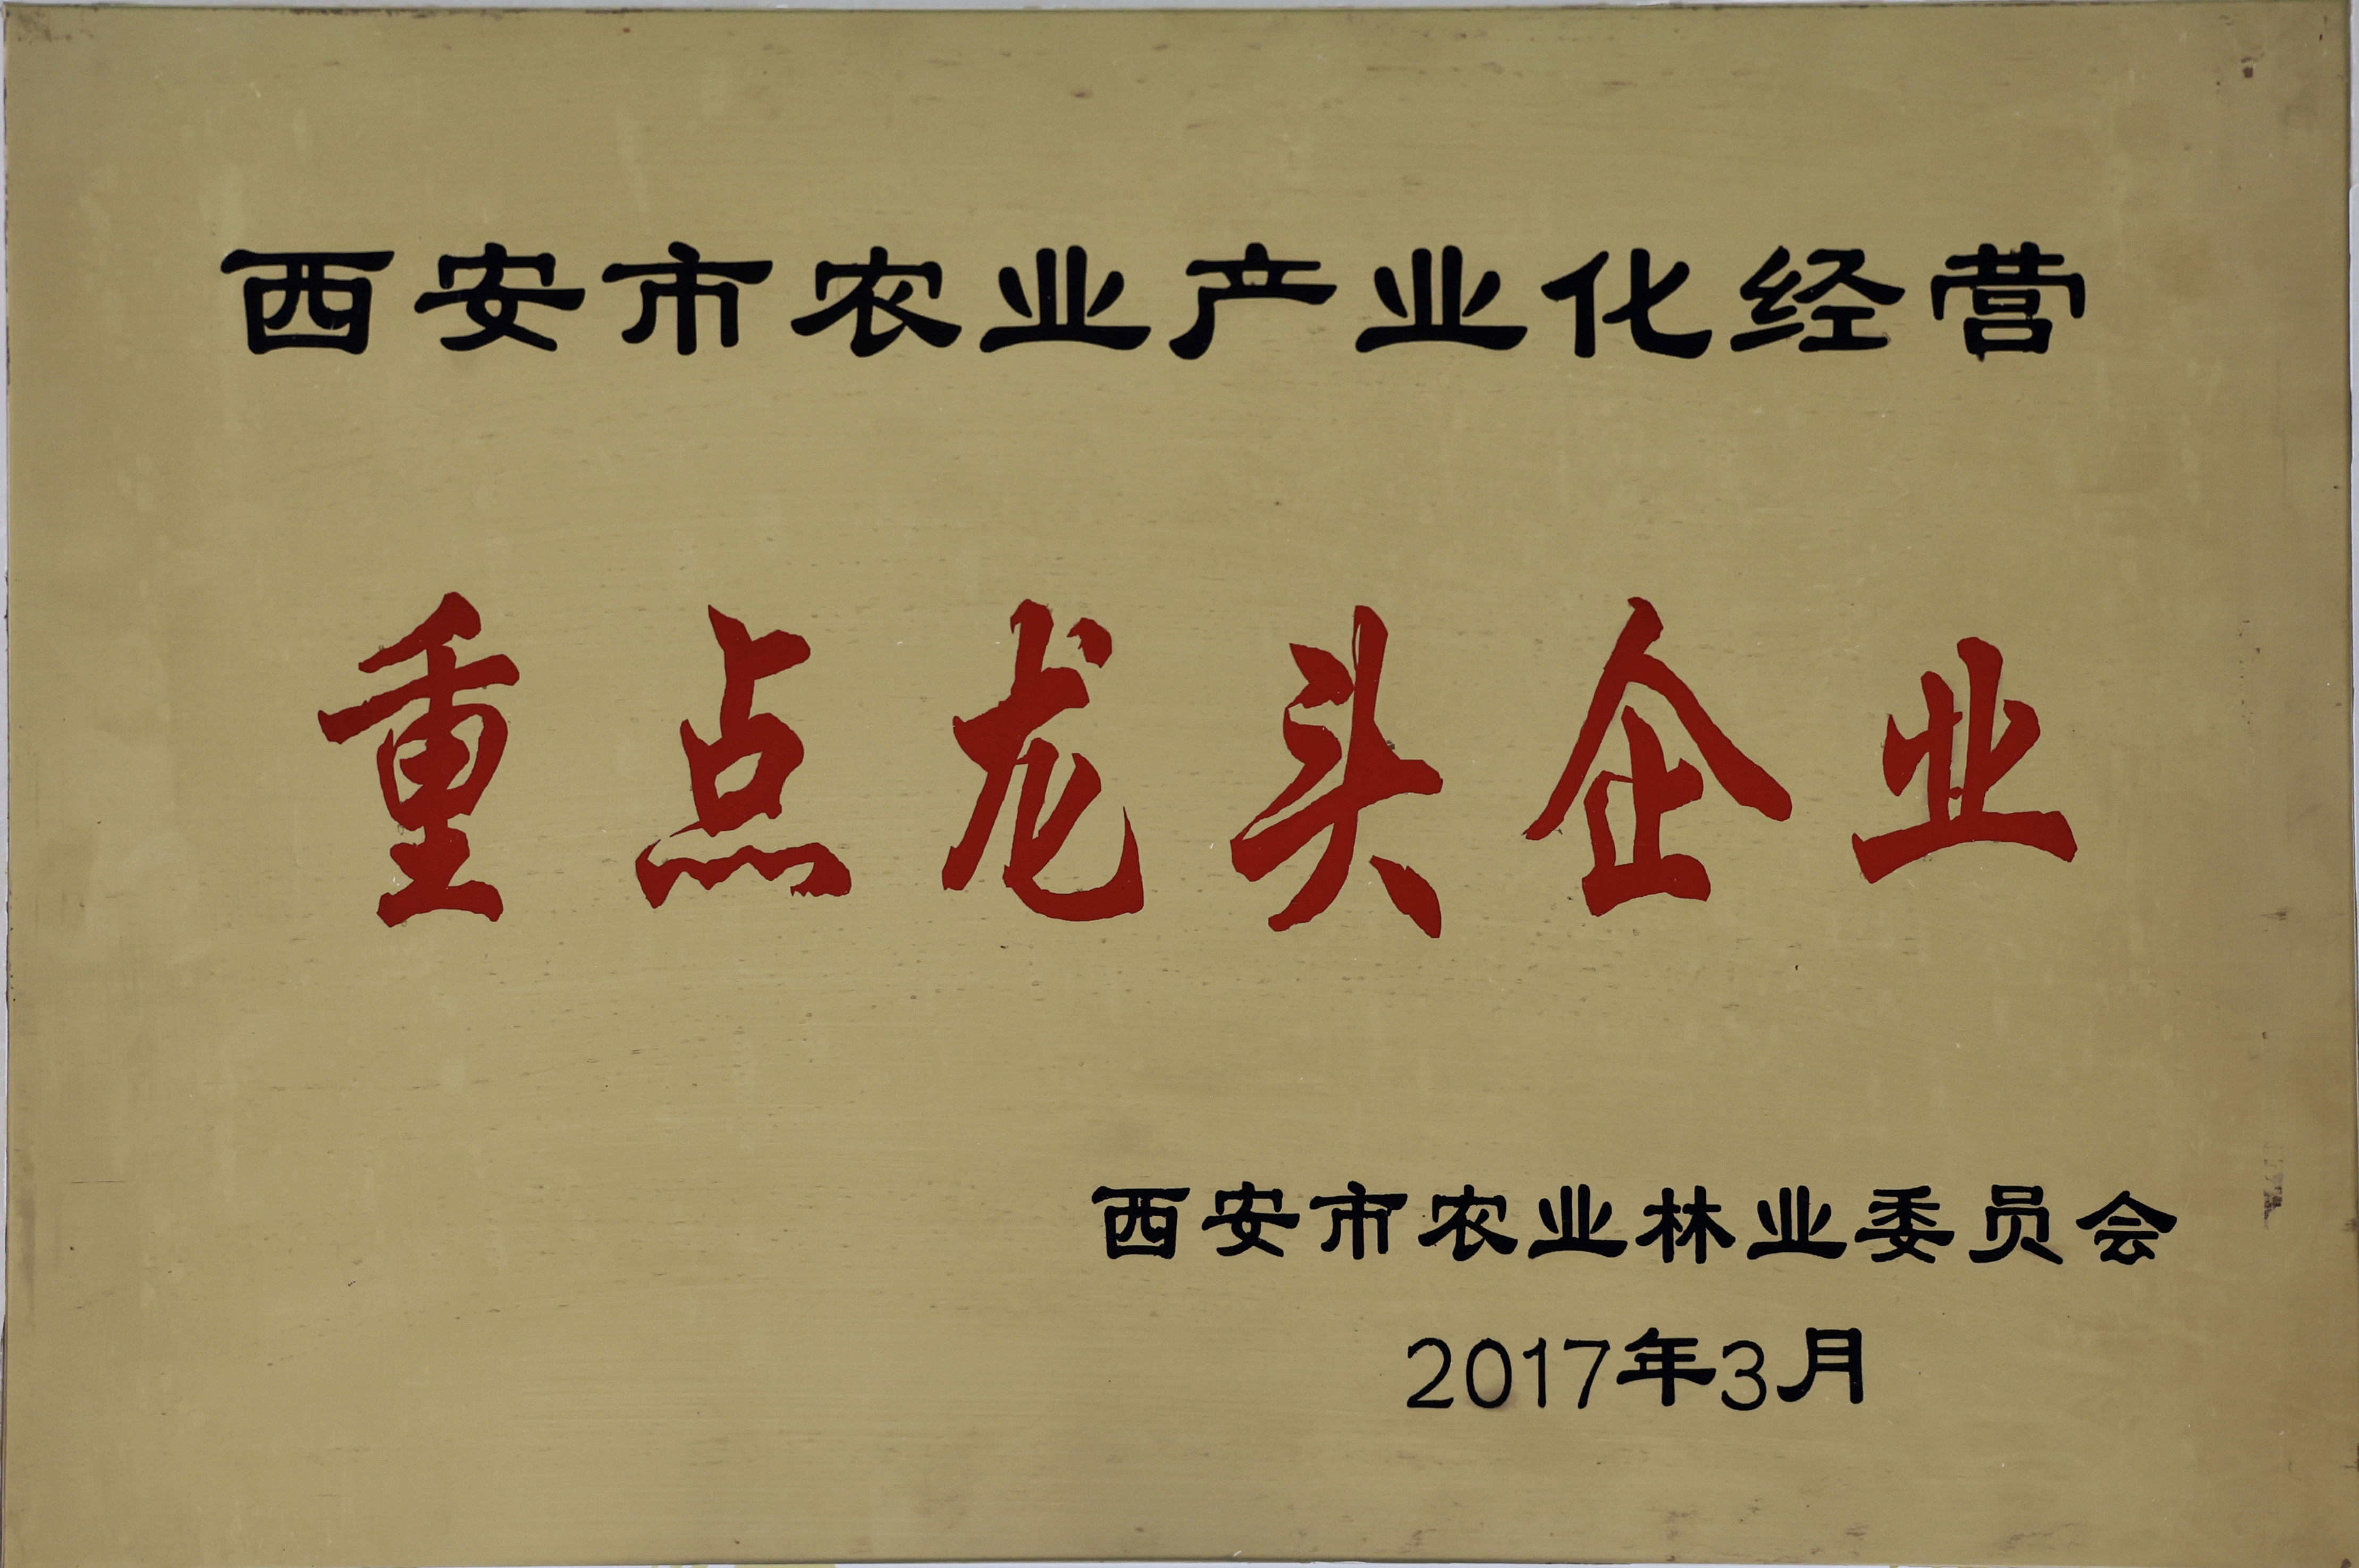 西安市农业产业化经营
重点龙头企业
西安市农业林业委员会
2017年3月